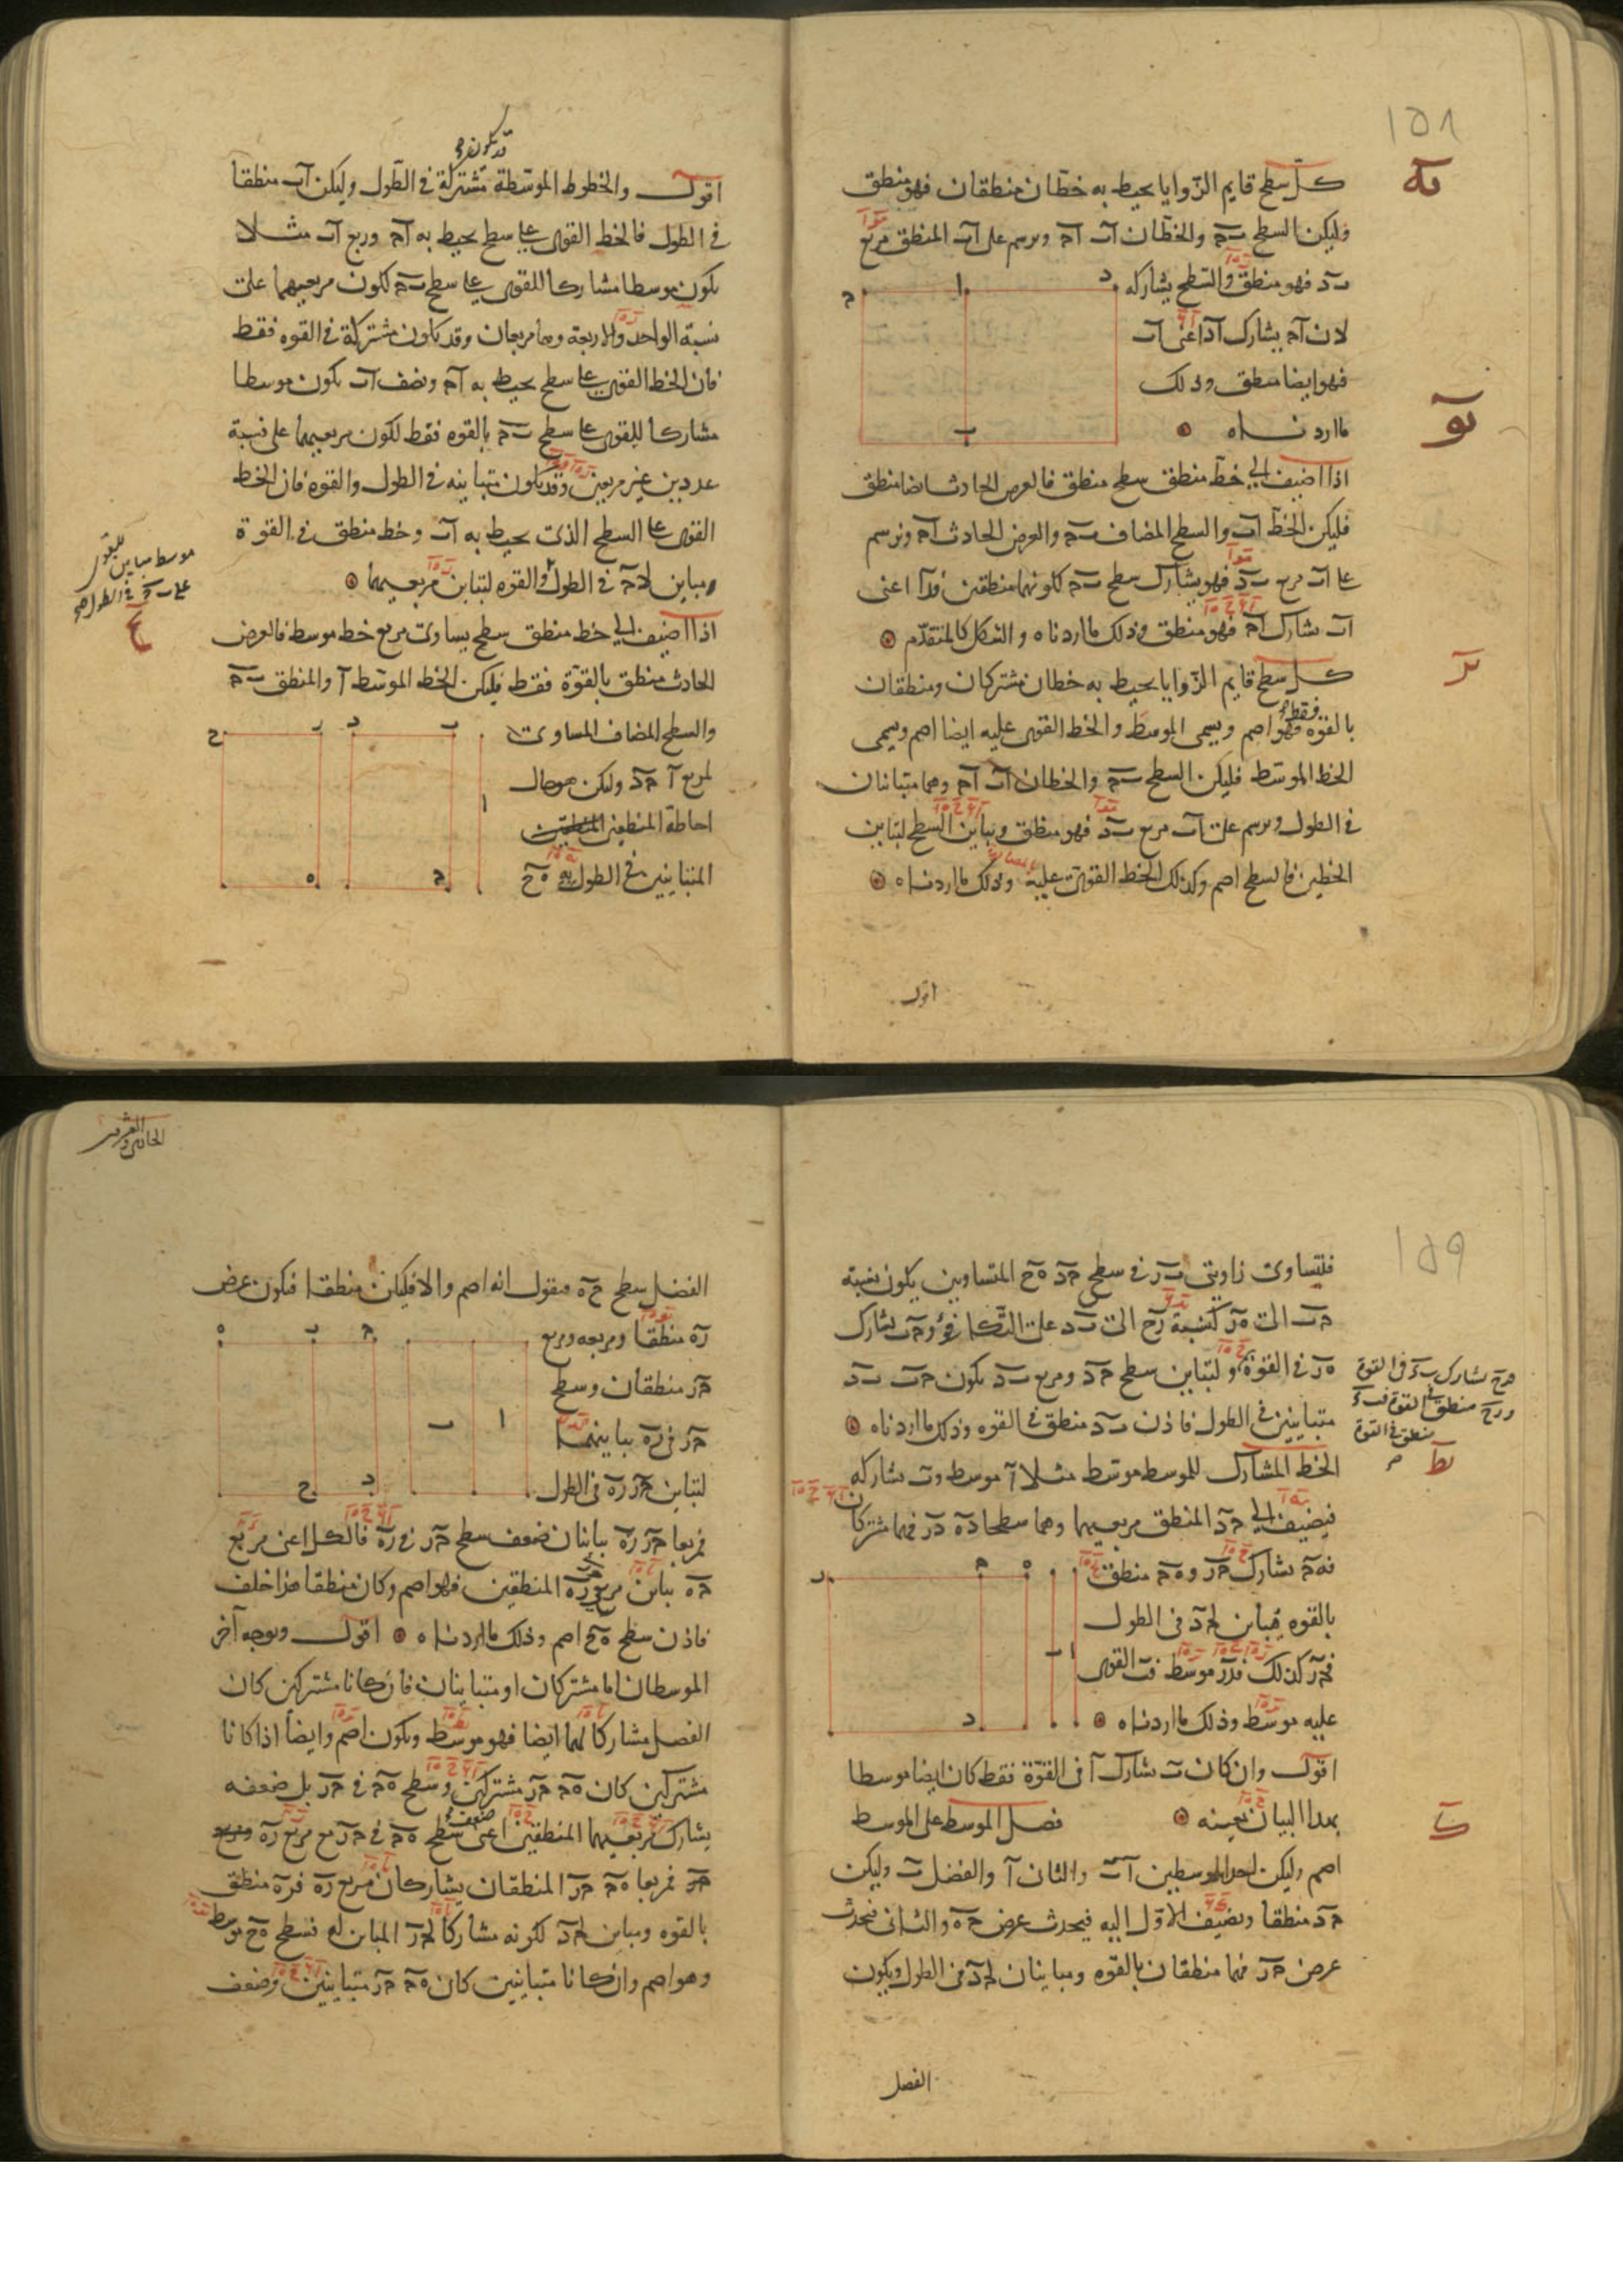 ١٥٨
كل سطح قايم الزوايا يحيط به خطان منطقان فهو منطق
وليكن السطح ب ج والخطان ا ب ا ج ونرسم على ا ب المنطق مربع
ب د فهو منطق والسطح يشاركه
لان ا ج يشارك ا د اعنى ا ب
فهو ايضا منطق وذلك
ما اردناه
اذا اضيف الى خط منطق سطح منطق فالعرض الحادث ايضا منطق
فليكن الخط ا ب والسطح المضاف ب ج والعرض الحادث ا ج ونرسم
على ا ب مربع ب د فهو يشارك سطح ب ج لكونهما منطقين فدا اعنى
ا ب يشارك ا ج فهو منطق وذلك ما اردناه والشكل كالمتقدم
كل سطح قايم الزوايا يحيط به خطان مشتركان ومنطقان
بالقوه فقط فهو اصم ويسمى الموسط والخط القوى عليه ايضا اصم ويسمى
الخط الموسط فليكن السطح ب ج والخطان ا ب ا ج وهما متباينان
فى الطول ونرسم على ا ب مربع ب د فهو منطق ويباين السطح لتباين
الخطين فالسطح اصم وكذلك الخط القوى عليه وذلك ما اردناه
اقول
قد تكون
اقول والخطوط الموسطة مشتركة فى الطول وليكن ا ب منطقا
فى الطول فالخط القوى على سطح يحيط به ا ج وربع ا ب مثلا
يكون موسطا مشاركا للقوى على سطح ب ج لكون مربعيهما على
نسبة الواحد والاربعة وهما مربعان وقد يكون مشتركة فى القوه فقط
فان الخط القوى على سطح يحيط به ا ج ونصف ا ب يكون موسطا
مشاركا للقوى على سطح ب ج بالقوه فقط لكون مربعيهما على نسبة
عددين غير مربعين وقد يكون متباينه فى الطول والقوه فان الخط
القوى على السطح الذى يحيط به ا ب وخط منطق فى القوة
مباين لا ج فى الطول والقوه لتباين مربعيهما
اذا اضيف الى خط منطق سطح يساوى مربع خط موسط فالعرض
الحادث منطق بالقوة فقط فليكن الخط الموسط ا والمنطق ب ج
والسطح المضاف المساوى
لمربع ا ج د وليكن
احاطة المنطقين
المتباينين فى الطول به ه ح
١٥٩
فلتساوى زاويتى ب ر فى سطحى ج د ه ح المتساويين يكون نسبة
ج ب الى ه ر كنسبة ر ح الى ب د على التكافؤ و ج ب يشارك
ه ر فى القوة ولتباين سطح ج د ومربع ب د يكون ج ب ب د
متباينين فى الطول فاذن ب د منطق فى القوه وذلك ما اردناه
الخط المشارك للموسط موسط مثلا ا موسط و ب يشاركه
فيضيف الى ج د المنطق مربعيهما وهما سطحا د ه د ر فهما مشتركان
فه ج يشارك ج ر و ه ج منطق
بالقوه مباين لج د فى الطول
فج ر كذلك فد ر موسط فب القوى
عليه موسط وذلك ما اردناه
اقول وان كان ب يشارك ا فى القوة فقط كان ايضا موسطا
بهذا البيان بعينه فضل الموسط على الموسط
اصم وليكن احد الموسطين ا ب والثانى ا والفضل ب وليكن
ج د منطقا ويضيف الاول اليه فيحدث عرض ج ه والثانى فيحدث
عرض ج ر فهما منطقان بالقوه ومباينان لج د فى الطول ويكون
الفصل
الفضل سطح ح ه فنقول انه اصم والا فليكن منطقا فيكون عرض
ر ه منطقا ومربعه ومربع
ج ر منطقان وسطح
ج ر فى ر ه يباينهما
لتباين ج ر ر ه فى الطول
فمربعا ج ر ر ه يباينان ضعف سطح ج ر فى ر ه فالكل اعنى مربع
ج ه يباين مربعى ج ر ر ه المنطقين فهو اصم وكان منطقا هذا خلف
فاذن سطح ه ح اصم وذلك ما اردناه اقول وبوجه آخر
الموسطان اما مشتركان او متباينان فان كانا مشتركين كان
الفضل مشاركا لهما ايضا فهو موسط ويكون اصم وايضا اذا كانا
مشتركين كان ه ج ج ر مشتركين وسطح ه ج فى ج ر بل ضعفه
يشارك مربعيهما المنطقين اعنى ضعف سطح ه ج فى ج ر مع مربع ر ه
فمربعا ه ج ج ر المنطقان يشاركان مربع ر ه فر ه منطق
بالقوه ومباين لج د لكونه مشاركا لج ر المباين له فسطح ه ح موسط
وهو اصم وان كانا متباينين كان ه ج ج ر متباينين وضعف